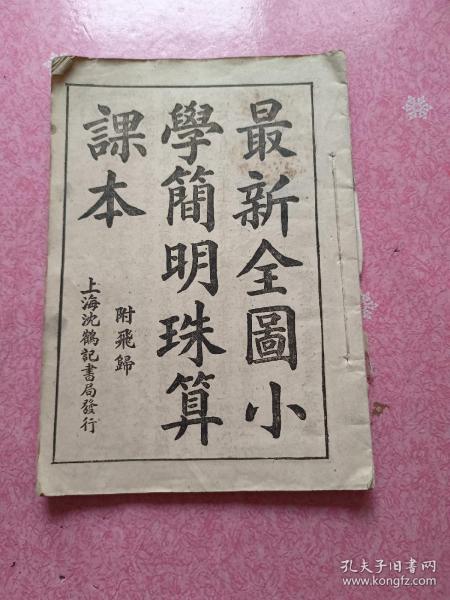 最新全圖小
學簡明珠算
課本
附飛歸
上海沈鶴記書局發行
孔夫子旧书网
www.kongfz.com